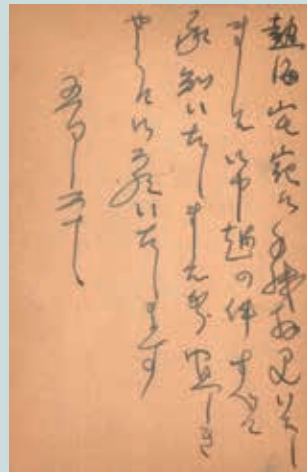 熱海宅宛御手紙拝見いたし
ましたお申越の件すべて
承知いたしました何卒宜しき
やうに御願いたします
五月二十